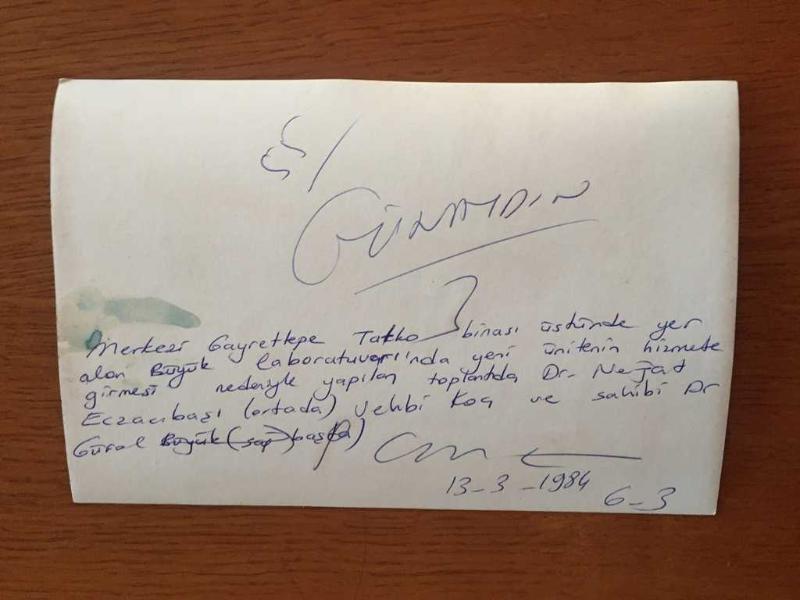 GÜNAYDIN
Merkezi Gayrettepe Tatko binası üstünde yer
alan Büyük laboratuvarı'nda yeni ünitenin hizmete
girmesi nedeniyle yapılan toplantıda Dr. Nejat
Eczacıbaşı (ortada) Vehbi Koç ve sahibi Dr
Güral Büyük (sağ başta)
13-3-1984
6-3